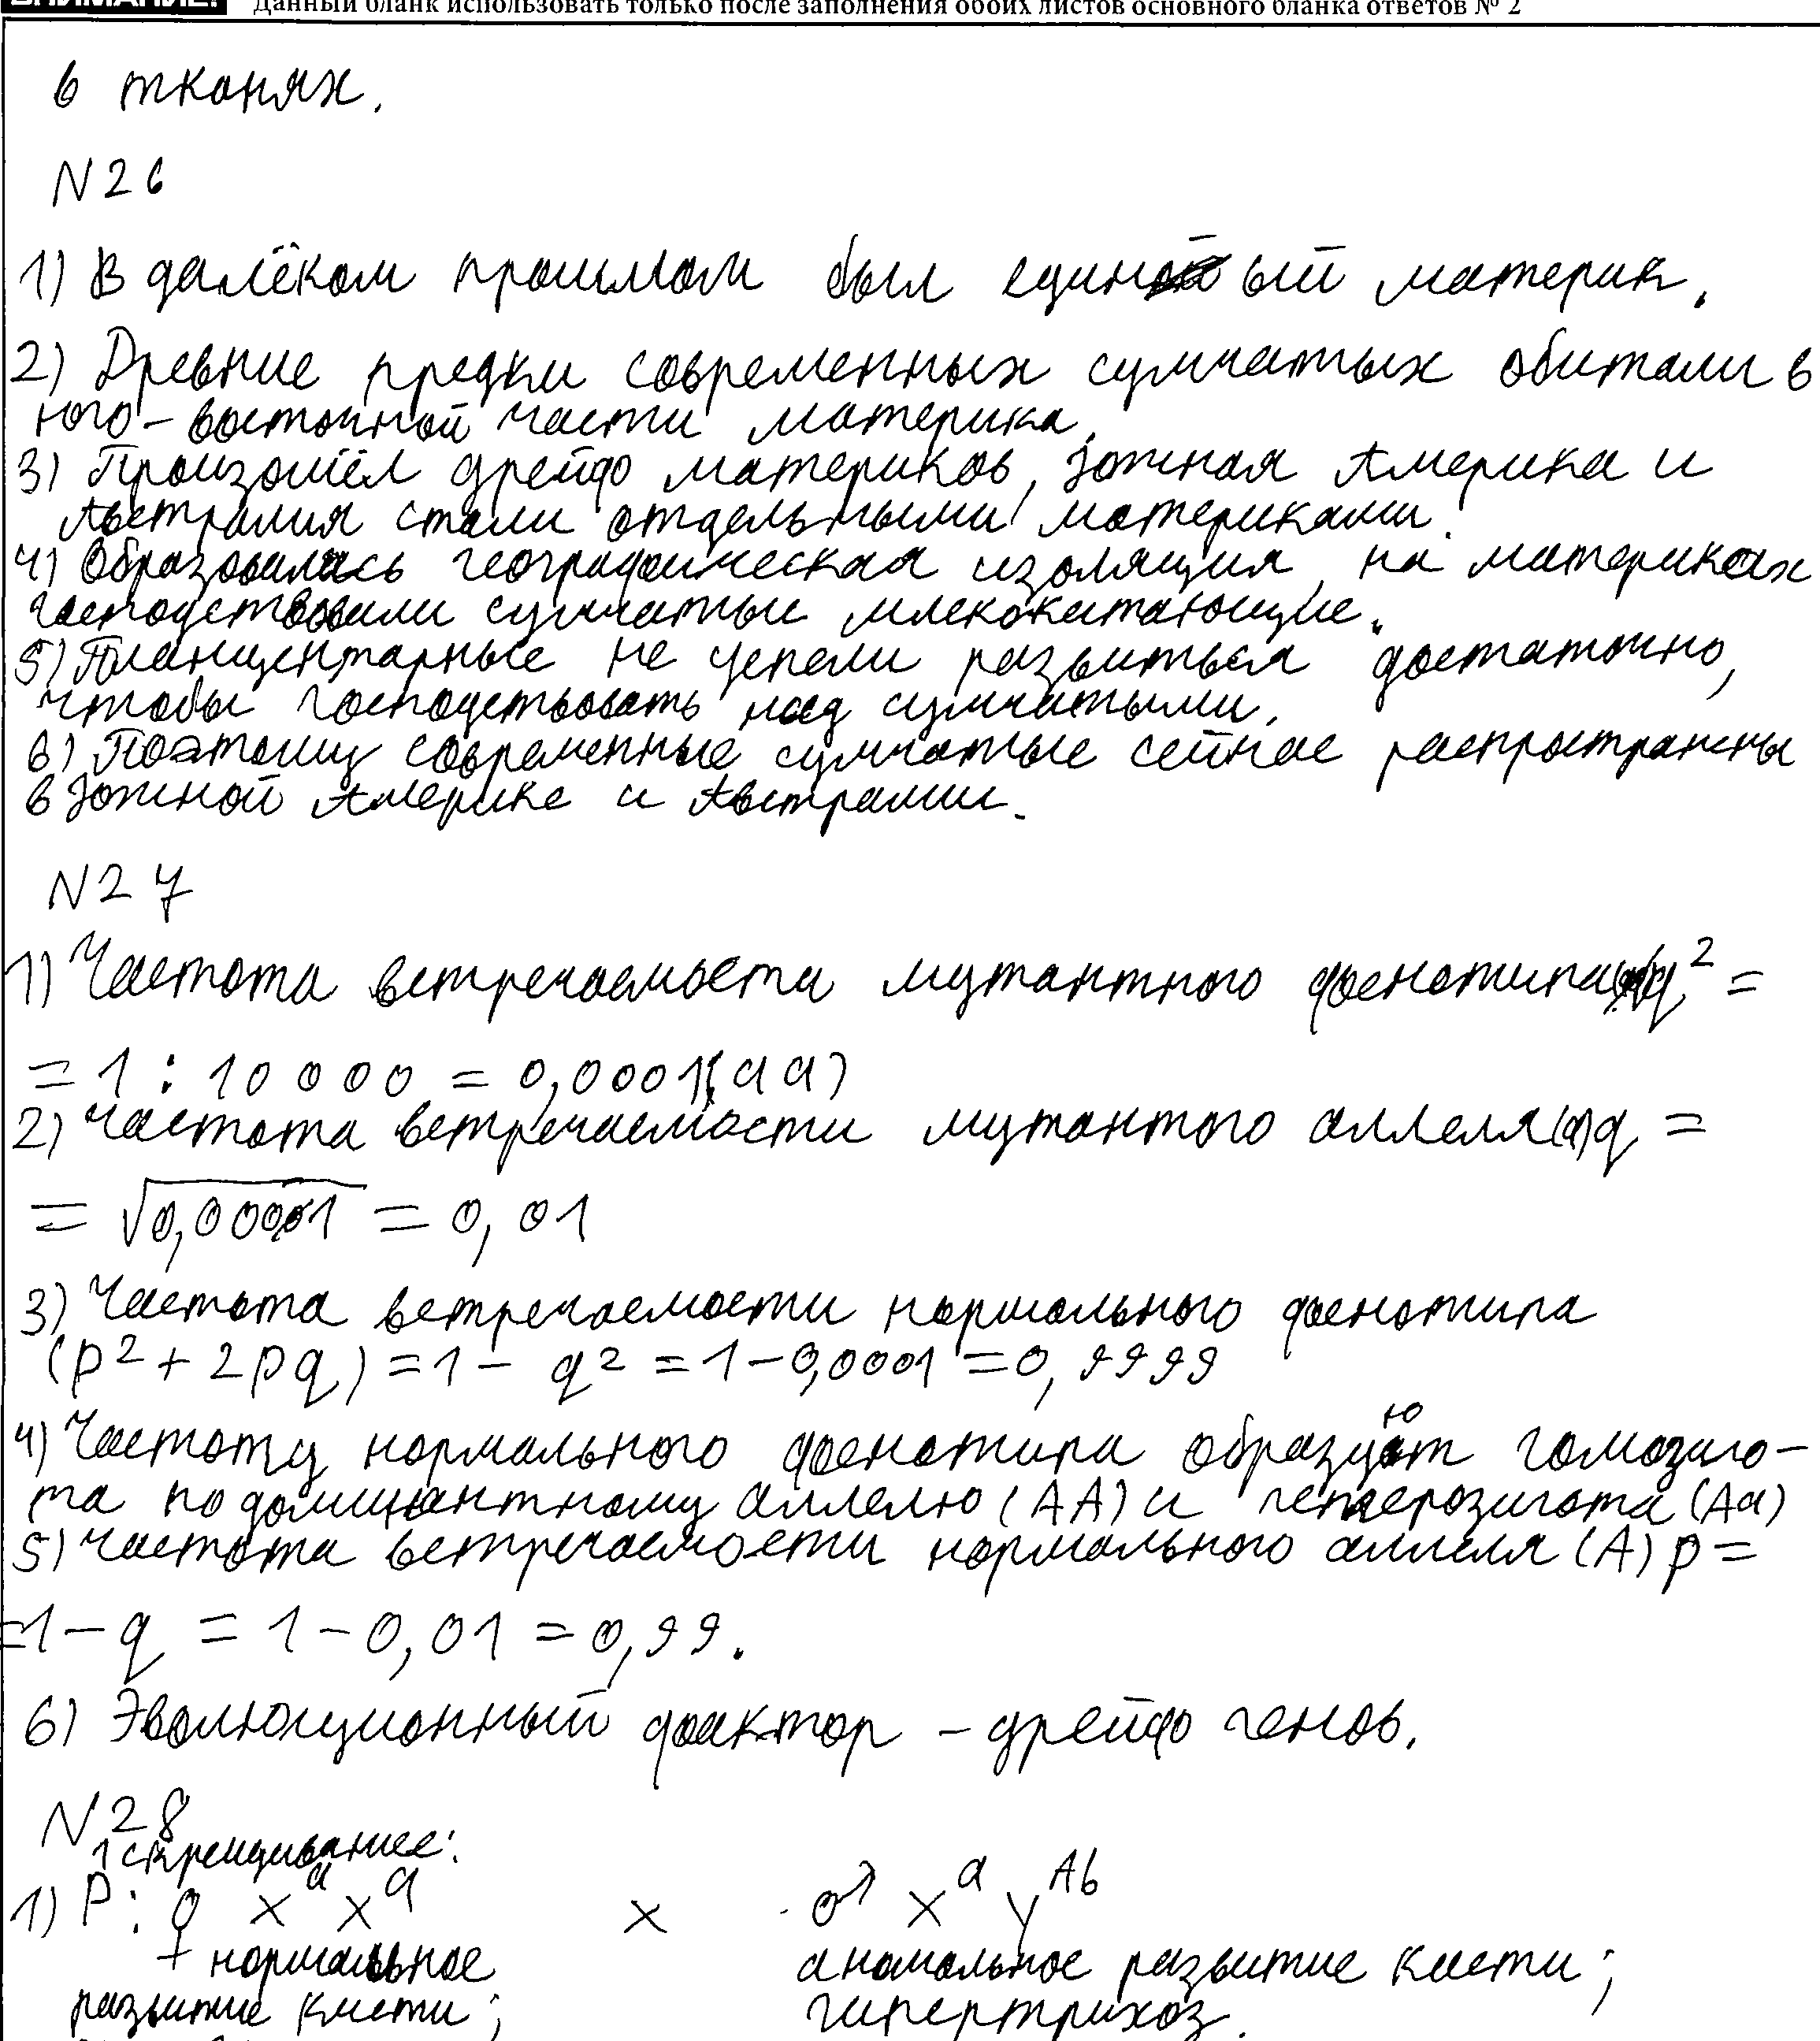 ВНИМАНИЕ! Данный бланк использовать только после заполнения обоих листов основного бланка ответов № 2
в тканях.
N26
1) В далёком прошлом был единый материк.
2) Древние предки современных сумчатых обитали в
юго-восточной части материка.
3) Произошёл дрейф материков, Южная Америка и
Австралия стали отдельными материками.
4) Образовалась географическая изоляция, на материках
господствовали сумчатые млекопитающие.
5) Планцентарные не успели развиться достаточно,
чтобы господствовать над сумчатыми.
6) Поэтому современные сумчатые сейчас распространены
в Южной Америке и Австралии.
N27
1) Частота встречаемости мутантного фенотипа q² =
= 1 : 10 000 = 0,0001 (aa)
2) Частота встречаемости мутантого аллеля (a) q =
= √0,0001 = 0,01
3) Частота встречаемости нормального фенотипа
(p² + 2pq) = 1 - q² = 1 - 0,0001 = 0,9999
4) Частоту нормального фенотипа образуют гомозиго-
та по доминантному аллелю (AA) и гетерозигота (Aa)
5) Частота встречаемости нормального аллеля (A) p =
= 1 - q = 1 - 0,01 = 0,99.
6) Эволюционный фактор - дрейф генов.
N28
1 скрещивание:
1) P: ♀ X^a X^a x ♂ X^a Y^Ab
нормальное аномальное развитие кисти;
развитие кисти; гипертрихоз.